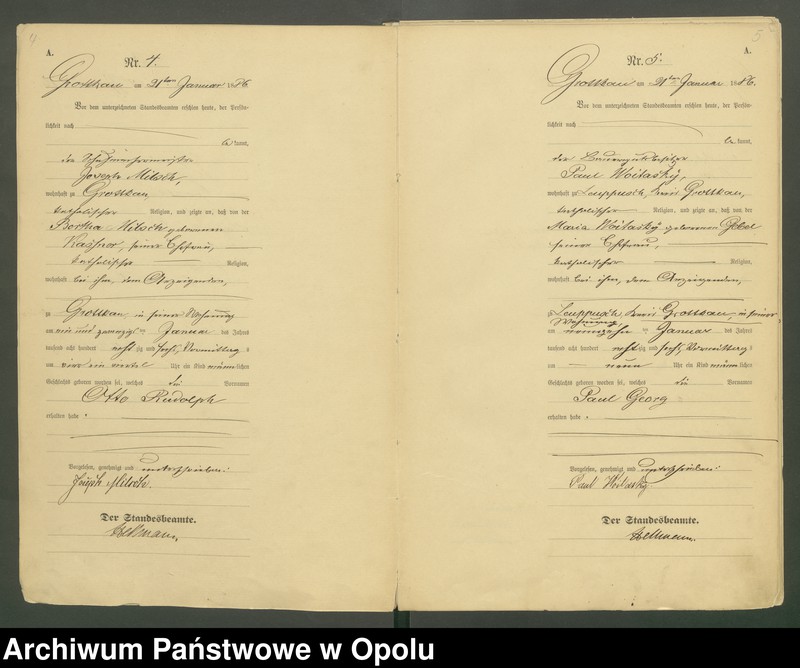 4
A.
Nr. 4.
Grottkau am 21ten Januar 1886.
Vor dem unterzeichneten Standesbeamten erschien heute, der Persön-
lichkeit nach
be kannt,
der Schuhmachermeister
Joseph Mitsch,
wohnhaft zu Grottkau
katholischer Religion, und zeigte an, daß von der
Bertha Mitsch, geborenen
seiner Ehefrau,
katholischer
Religion,
wohnhaft bei ihm, dem Anzeigenden,
zu Grottkau, in seiner Wohnung
am ein und zwanzigsten Januar des Jahres
tausend acht hundert achtzig und sechs, Vormittags
um ein viertel Uhr ein Kind männlichen
Geschlechts geboren worden sei, welches die Vornamen
Otto Rudolph
erhalten habe.
Vorgelesen, genehmigt und unterschrieben:
Joseph Mitsch.
Der Standesbeamte.
5
A.
Nr. 5.
Grottkau am 21ten Januar 1886.
Vor dem unterzeichneten Standesbeamten erschien heute, der Persön-
lichkeit nach
be kannt,
der Bauergutsbesitzer
Paul Woitasky,
wohnhaft zu Leuppusch, Kreis Grottkau,
katholischer Religion, und zeigte an, daß von der
Maria Woitasky, geborenen
seiner Ehefrau,
katholischer
Religion,
wohnhaft bei ihm, dem Anzeigenden,
zu Leuppusch, Kreis Grottkau, in seiner
Wohnung
am neunzehnten Januar des Jahres
tausend acht hundert achtzig und sechs, Vormittags
um neun Uhr ein Kind männlichen
Geschlechts geboren worden sei, welches die Vornamen
Paul Georg
erhalten habe.
Vorgelesen, genehmigt und unterschrieben:
Paul Woitasky
Der Standesbeamte.
Archiwum Państwowe w Opolu